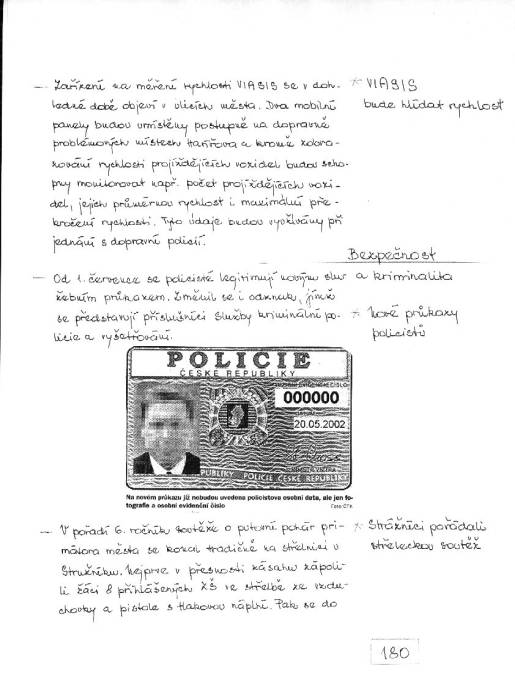 — Zařízení na měření rychlosti VIASIS se v doh-
ledné době objeví v ulicích města. Dva mobilní
panely budou umístěny postupně na dopravně
problémových místech Havířova a kromě zobra-
zování rychlosti projíždějících vozidel budou scho-
pny monitorovat např. počet projíždějících vozi-
del, jejich průměrnou rychlost i maximální pře-
kročení rychlosti. Tyto údaje budou využívány při
jednání s dopravní policií.
* VIASIS
bude hlídat rychlost
Bezpečnost
a kriminalita
— Od 1. července se policisté legitimují novým služ
žebním průkazem. Změnil se i odznak, jímž
se představují příslušníci Služby kriminální po-
licie a vyšetřování.
* Nové průkazy
policistů
POLICIE
ČESKÉ REPUBLIKY
OSOBNÍ EVIDENČNÍ ČÍSLO
000000
20.05.2002
MINISTR VNITRA
REPUBLIKY POLICIE ČESKÉ REPUBLIKY
Na novém průkazu již nebudou uvedena policistova osobní data, ale jen fo-
tografie a osobní evidenční číslo
Foto: ČTK
— V pořadí 6. ročník soutěže o putovní pohár pri-
mátora města se konal tradičně na střelnici v
Stružníku. Nejprve v přesnosti zásahu zápoli-
li žáci 8 přihlášených ZŠ ve střelbě ze vzdu-
chovky a pistole s tlakovou náplní. Pak se do
* Strážníci pořádali
střeleckou soutěž
180